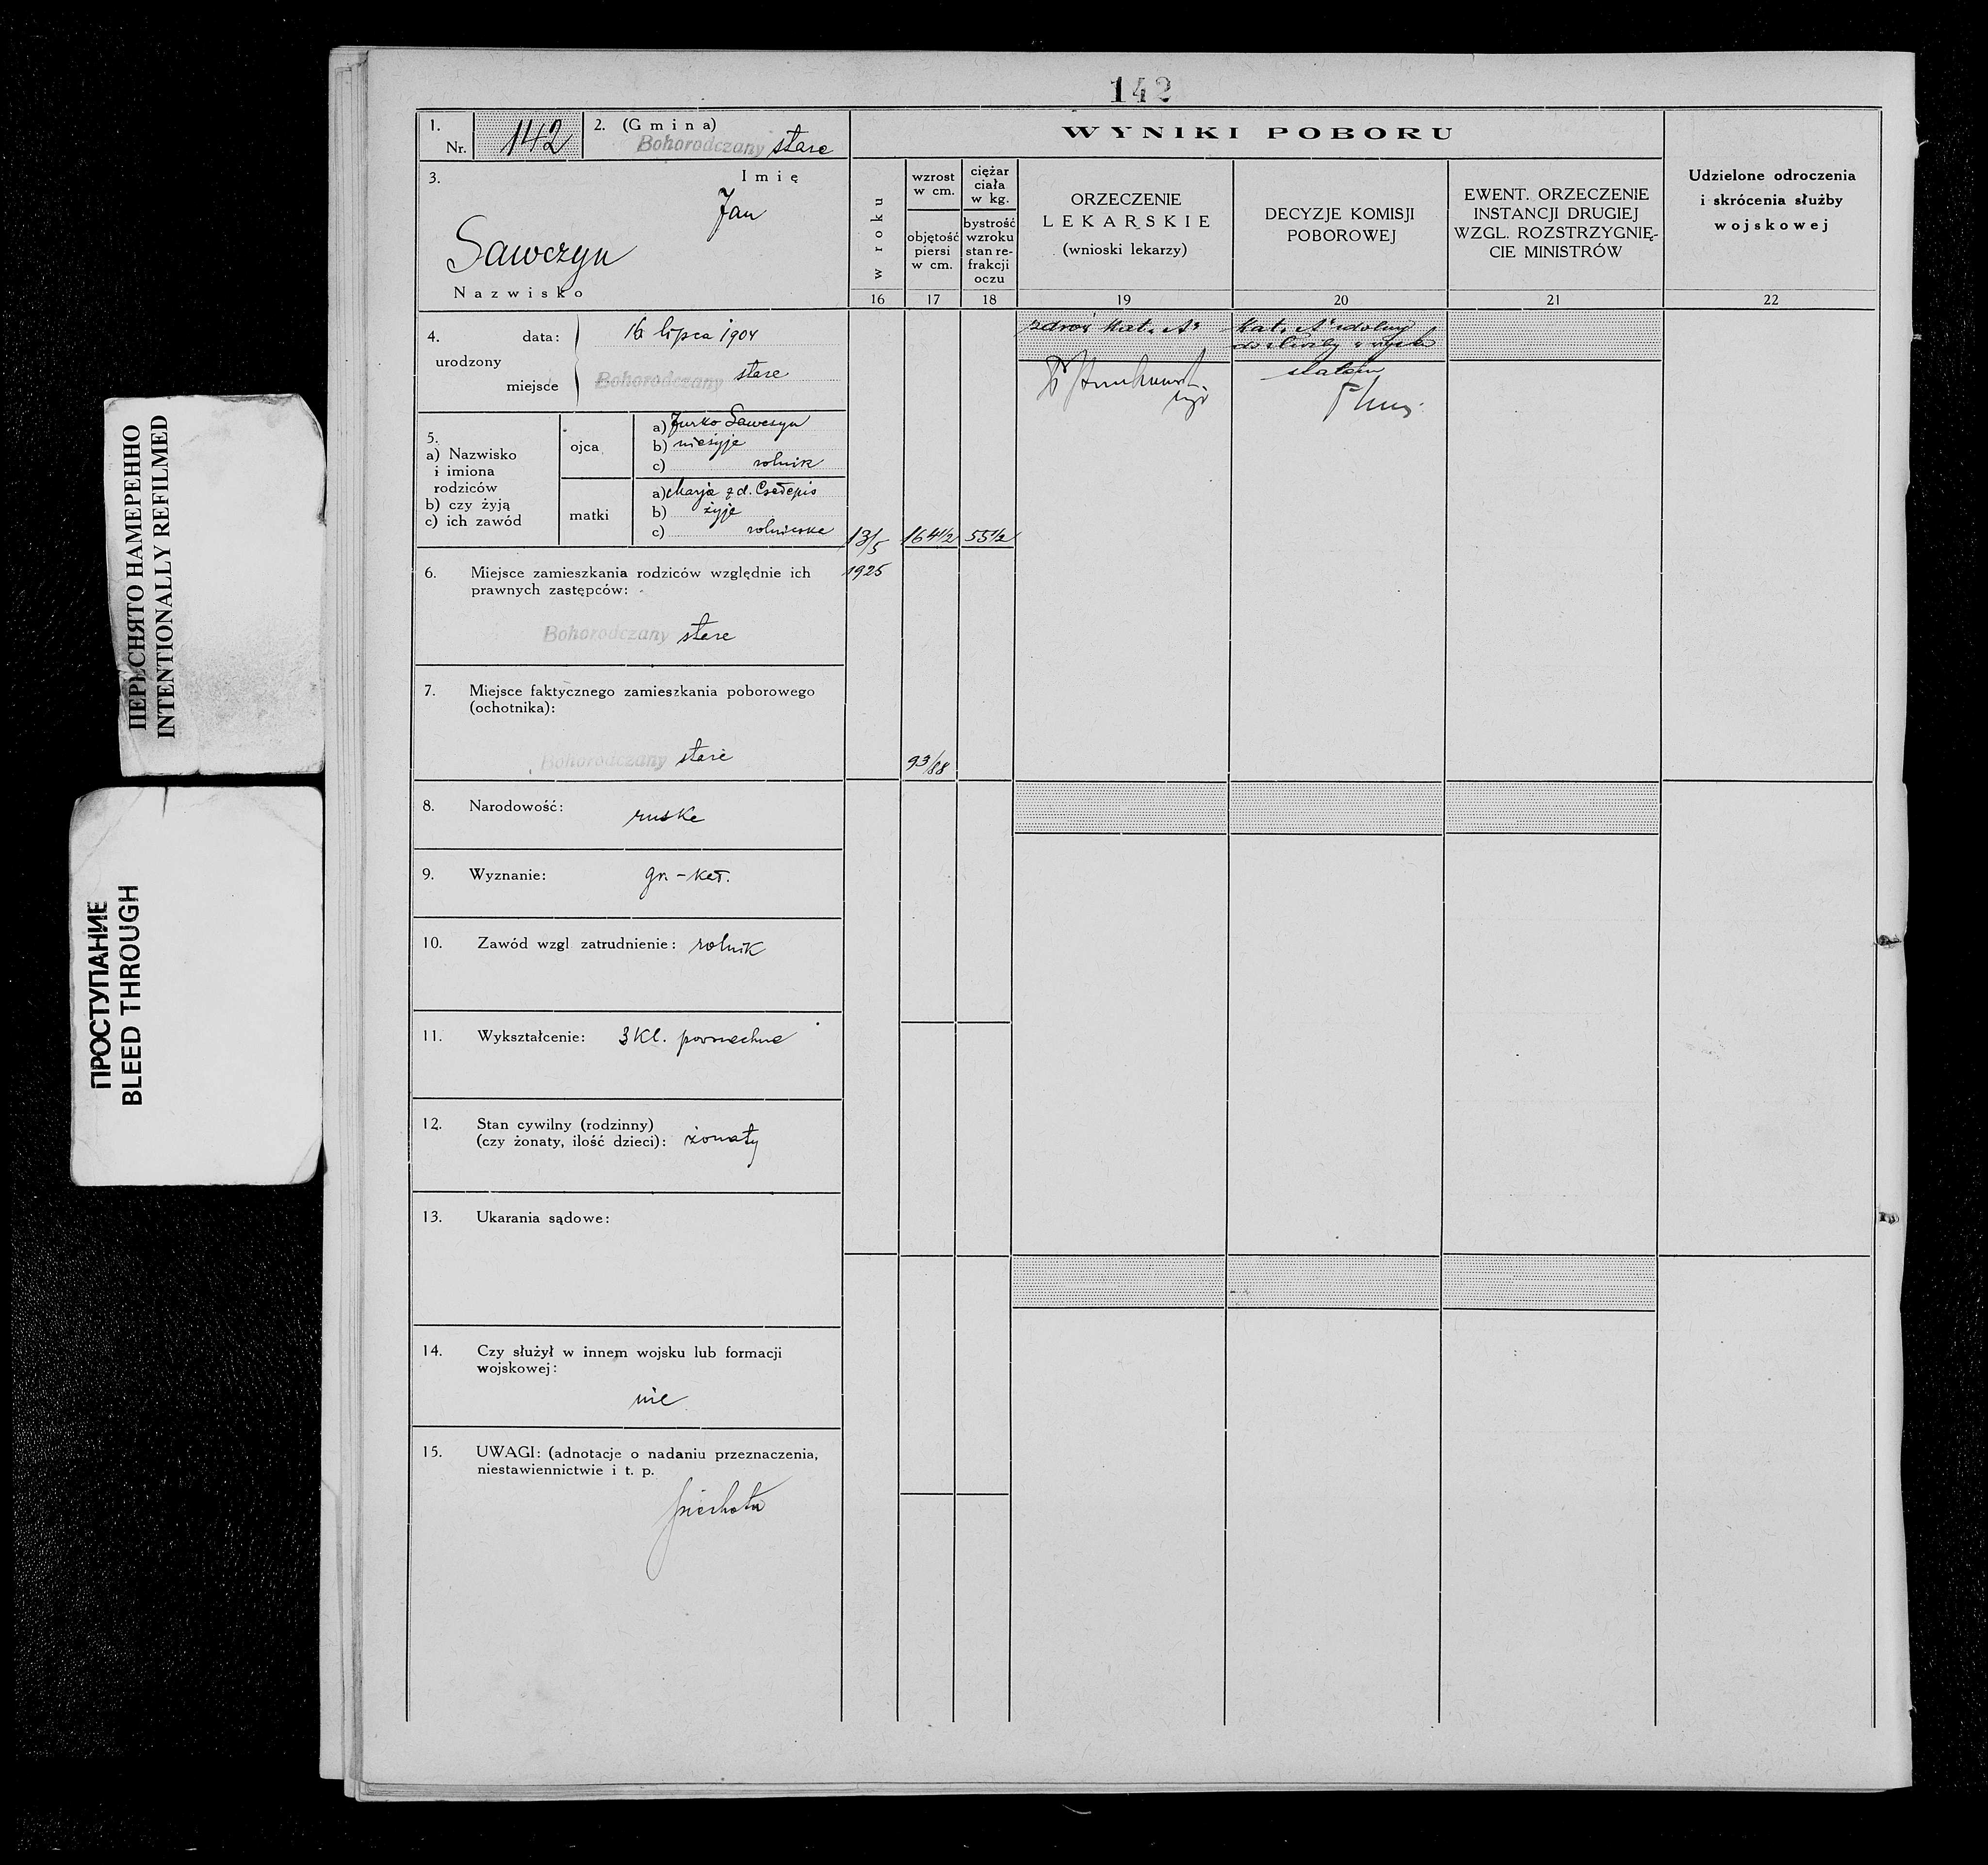 142
1. Nr. 142
2. (Gmina) Bohorodczany stare
3. Imię
Jan
Sawczyn
Nazwisko
4. urodzony
data: 16 lipca 1904
miejsce Bohorodczany stare
5.
a) Nazwisko
i imiona
rodziców
b) czy żyją
c) ich zawód
ojca
a) Jurko Sawczyn
b) nieżyje
c) rolnik
matki
a) Marja z d.
b) żyje
c)
6. Miejsce zamieszkania rodziców względnie ich
prawnych zastępców:
Bohorodczany stare
7. Miejsce faktycznego zamieszkania poborowego
(ochotnika):
Bohorodczany stare
8. Narodowość: ruska
9. Wyznanie: gr. - kat.
10. Zawód wzgl zatrudnienie: rolnik
11. Wykształcenie: 3 Kl. powszechne
12. Stan cywilny (rodzinny)
(czy żonaty, ilość dzieci): żonaty
13. Ukarania sądowe:
14. Czy służył w innem wojsku lub formacji
wojskowej:
nie
15. UWAGI: (adnotacje o nadaniu przeznaczenia,
niestawiennictwie i t. p.
piechota
WYNIKI POBORU
w roku
16
wzrost
w cm.
objętość
piersi
w cm.
17
ciężar
ciała
w kg.
bystrość
wzroku
stan re-
frakcji
oczu
18
ORZECZENIE
LEKARSKIE
(wnioski lekarzy)
19
DECYZJE KOMISJI
POBOROWEJ
20
EWENT. ORZECZENIE
INSTANCJI DRUGIEJ
WZGL. ROZSTRZYGNIĘ-
CIE MINISTRÓW
21
Udzielone odroczenia
i skrócenia służby
wojskowej
22
13/5
1925
164 1/2
55 1/2
93/88
zdrów Kat. A
Kat. A zdolny
do służby
ПЕРЕСНЯТО НАМЕРЕННО
INTENTIONALLY REFILMED
ПРОСТУПАНИЕ
BLEED THROUGH